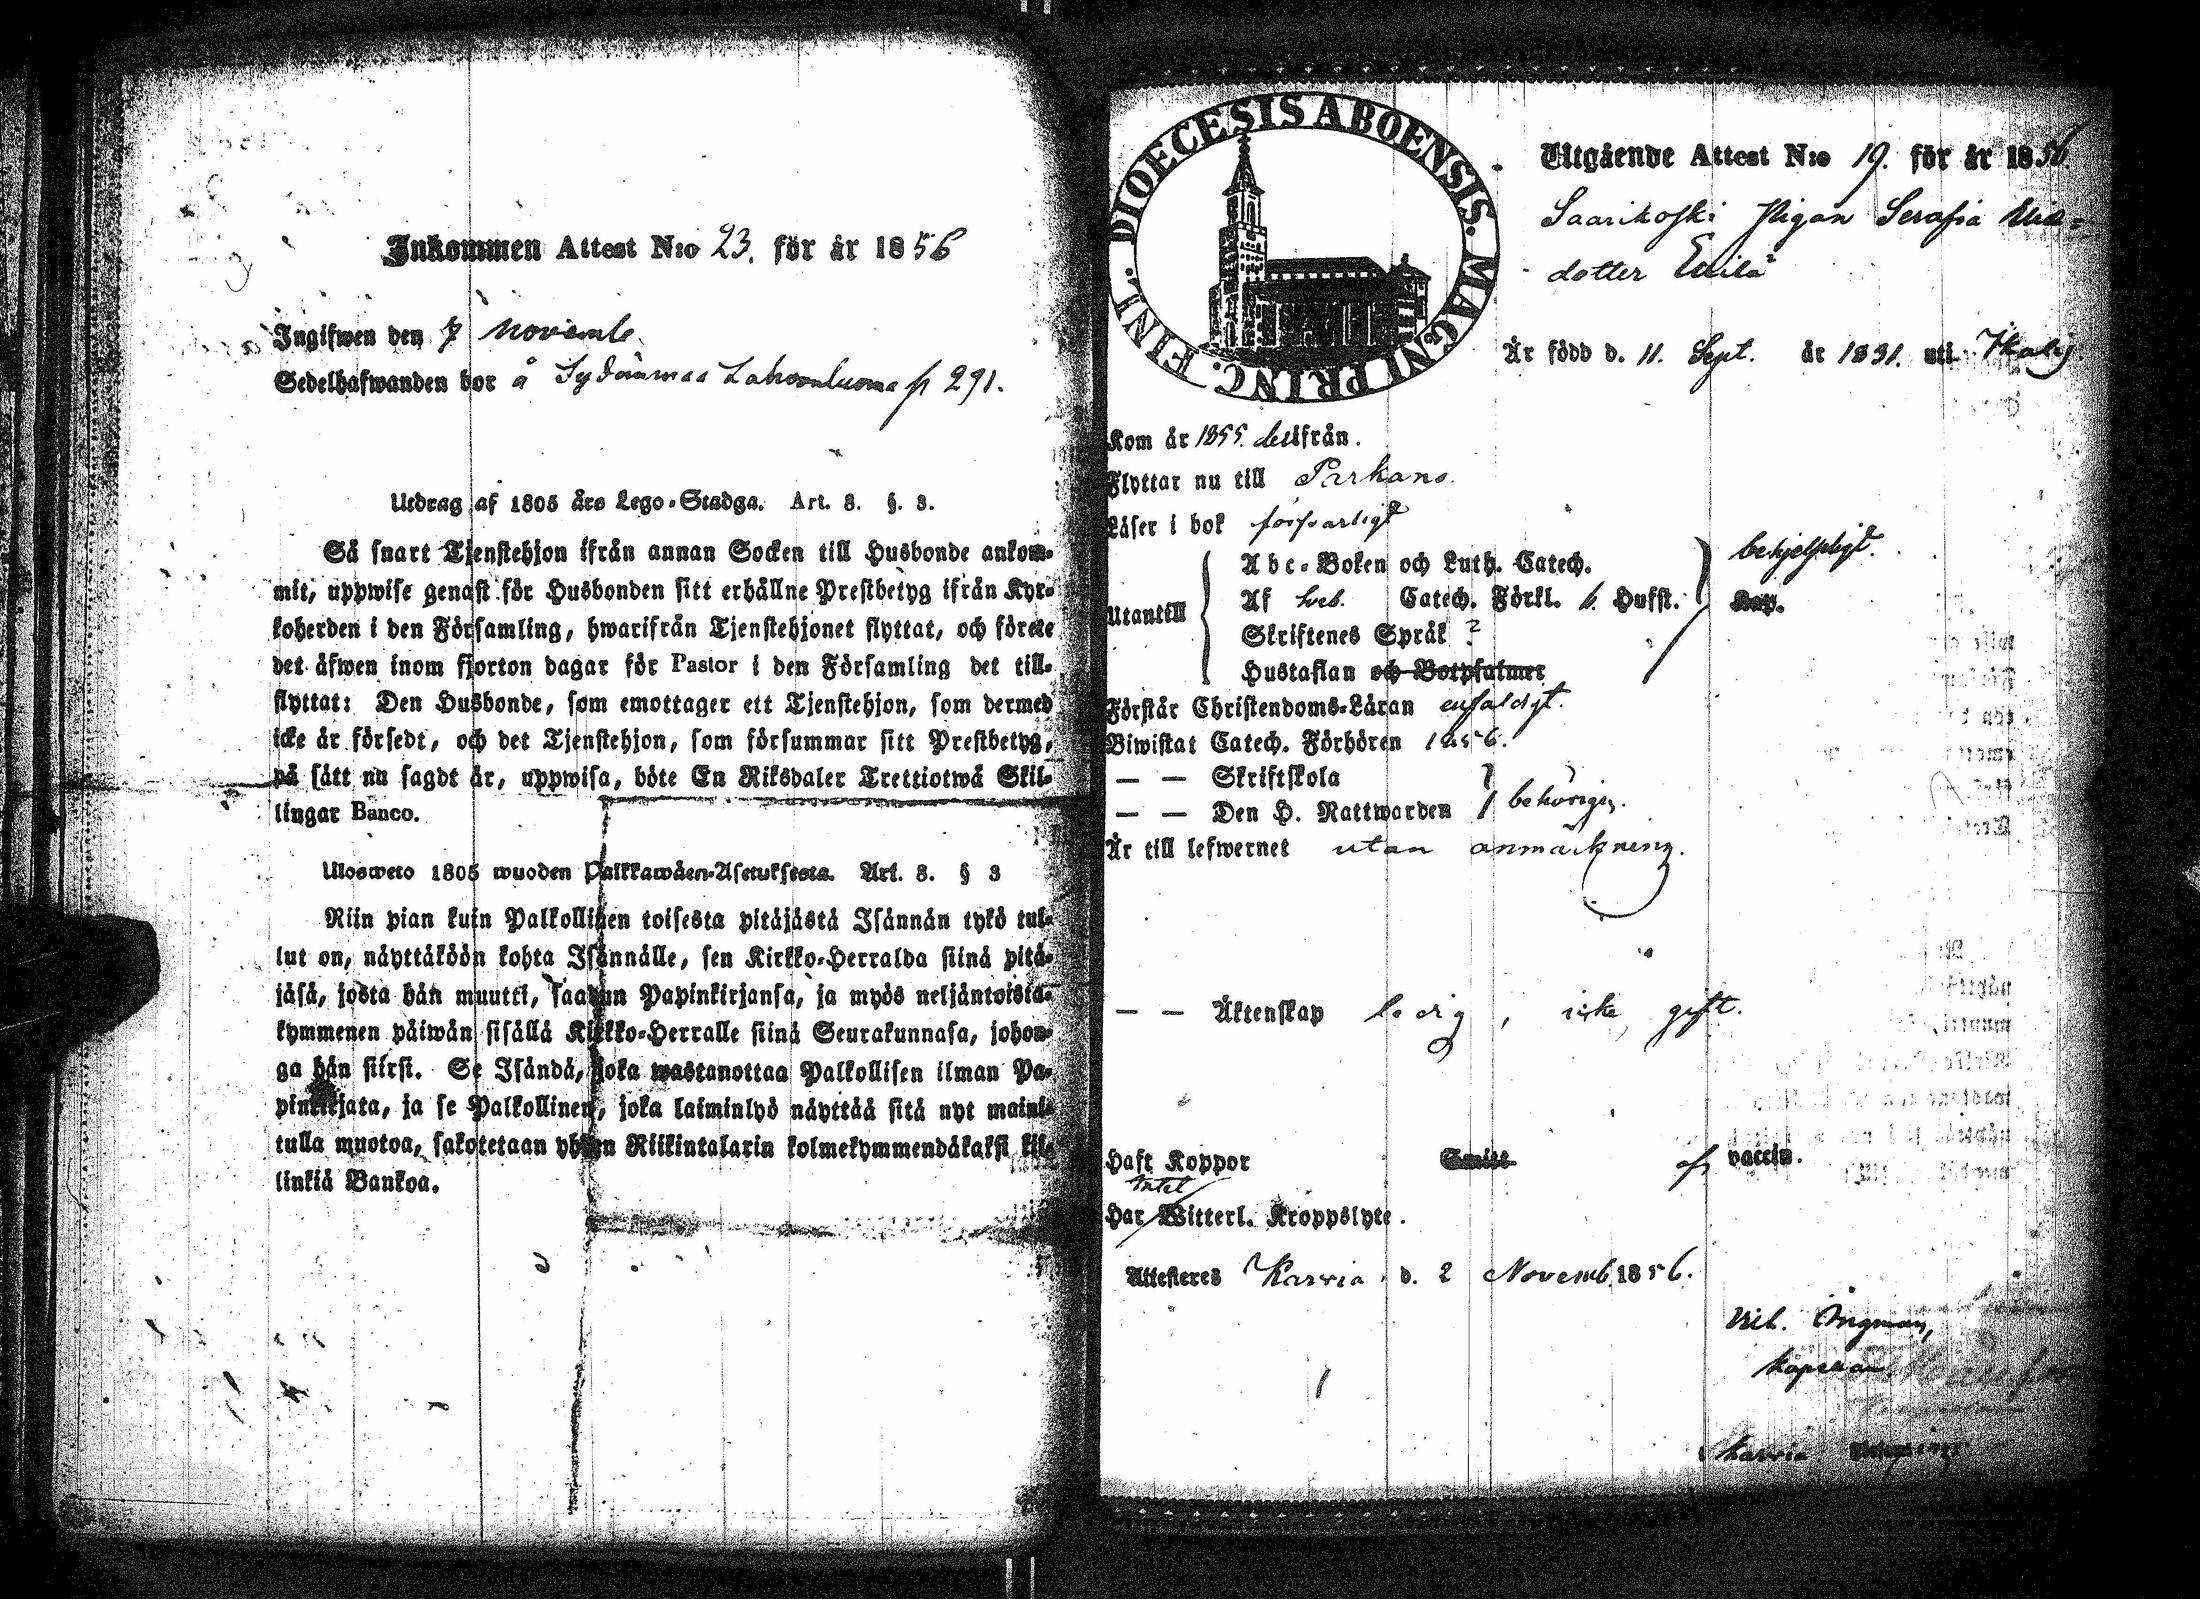 Inkommen Attest N:o 23. för år 1856
Ingifwen den 7 Novemb.
Sedelhafwanden bor å Sydänmaa Lahvonluoma p 291.
Utdrag af 1805 års Lego-Stadga. Art. 8. §. 3.
Så snart Tjenstehjon ifrån annan Socken till Husbonde ankom-
mit, uppwise genast för Husbonden sitt erhållne Prestbetyg ifrån Kyr-
koherden i den Församling, hwarifrån Tjenstehjonet flyttat, och förete
det äfwen inom fjorton dagar för Pastor i den Församling det till-
flyttat: Den Husbonde, som emottager ett Tjenstehjon, som dermed
icke är försedt, och det Tjenstehjon, som försummar sitt Prestbetyg,
på sätt nu sagdt är, uppwisa, böte En Riksdaler Trettiotwå Skil-
lingar Banco.
Ulosweto 1805 wuoden Palkkawäen-Asetuksesta. Art. 8. § 3
Niin pian kuin Palkollinen toisesta pitäjästä Isännän tykö tul-
lut on, näyttäköön kohta Isännälle, sen Kirkko-Herralda siinä pitä-
jäsä, josta hän muutti, saadun Papinkirjansa, ja myös neljäntoista-
kymmenen päiwän sisällä Kirkko-Herralle siinä Seurakunnasa, johon-
ga hän siirsi. Se Isändä, joka wastanottaa Palkollisen ilman Pa-
pinkirjata, ja se Palkollinen, joka laiminlyö näyttää sitä nyt maini-
tulla muotoa, sakotetaan yhden Riikintalarin kolmekymmendäkaksi kil-
linkiä Bankoa.
DIOECESIS ABOENSIS. MAGNI PRINC. FINL.
Utgående Attest N:o 19. för år 1856
Saarikoski Pigan Serafia
dotter
Är född d. 11. Sept. år 1831. uti Ikalis.
Kom år 1855. derifrån.
Flyttar nu till Parkano.
Läser i bok försvarligt
Abc-Boken och Luth. Catech. behjelpligt.
Utantill Af Sveb. Catech. Förkl. 6. Hufst. Kap.
Skriftenes Språk ?
Hustaflan och Botpsalmer
Förstår Christendoms-Läran enfaldigt.
Biwistat Catech. Förhören 1856.
— — Skriftskola
— — Den H. Nattwarden behörigen.
Är till lefwernet utan anmärkning.
— — Äktenskap ledig, icke gift.
Haft Koppor Smitt af vaccin.
intet
Har Witterl. Kroppslyte.
Attesteres Karvia d. 2 Novemb. 1856.
Vilh. Öngman,
kapellan
Karvia